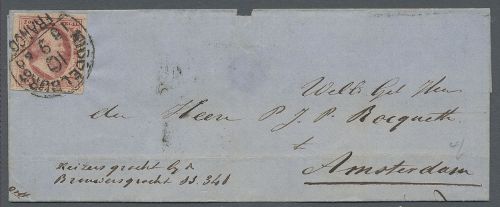 MIDDELBURG
FRANCO
10
Weld Geb Heer
den Heer P. J. P. Rocquette
te
Amsterdam
Keizersgracht by de
Brouwersgracht